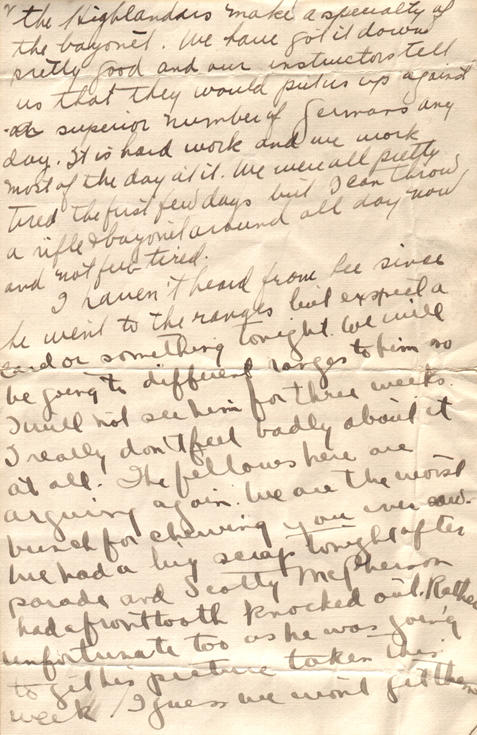 the Highlanders make a specialty of
the bayonet. We have got it down
pretty good and our instructors tell
us that they would put us up against
a superior number of Germans any
day. It is hard work and we work
most of the day at it. We were all pretty
tired the first few days but I can throw
a rifle & bayonet around all day now
and not feel tired.
I haven't heard from Lee since
he went to the ranges but expect a
card or something tonight. We will
be going to different ranges to him so
I will not see him for three weeks.
I really don't feel badly about it
at all. The fellows here are
arguing again. We are the worst
bunch for chewing you ever saw.
We had a big scrap tonight after
parade and Scotty McPherson
had a front tooth knocked out. Rather
unfortunate too as he was going
to get his picture taken this
week. I guess we won't get them